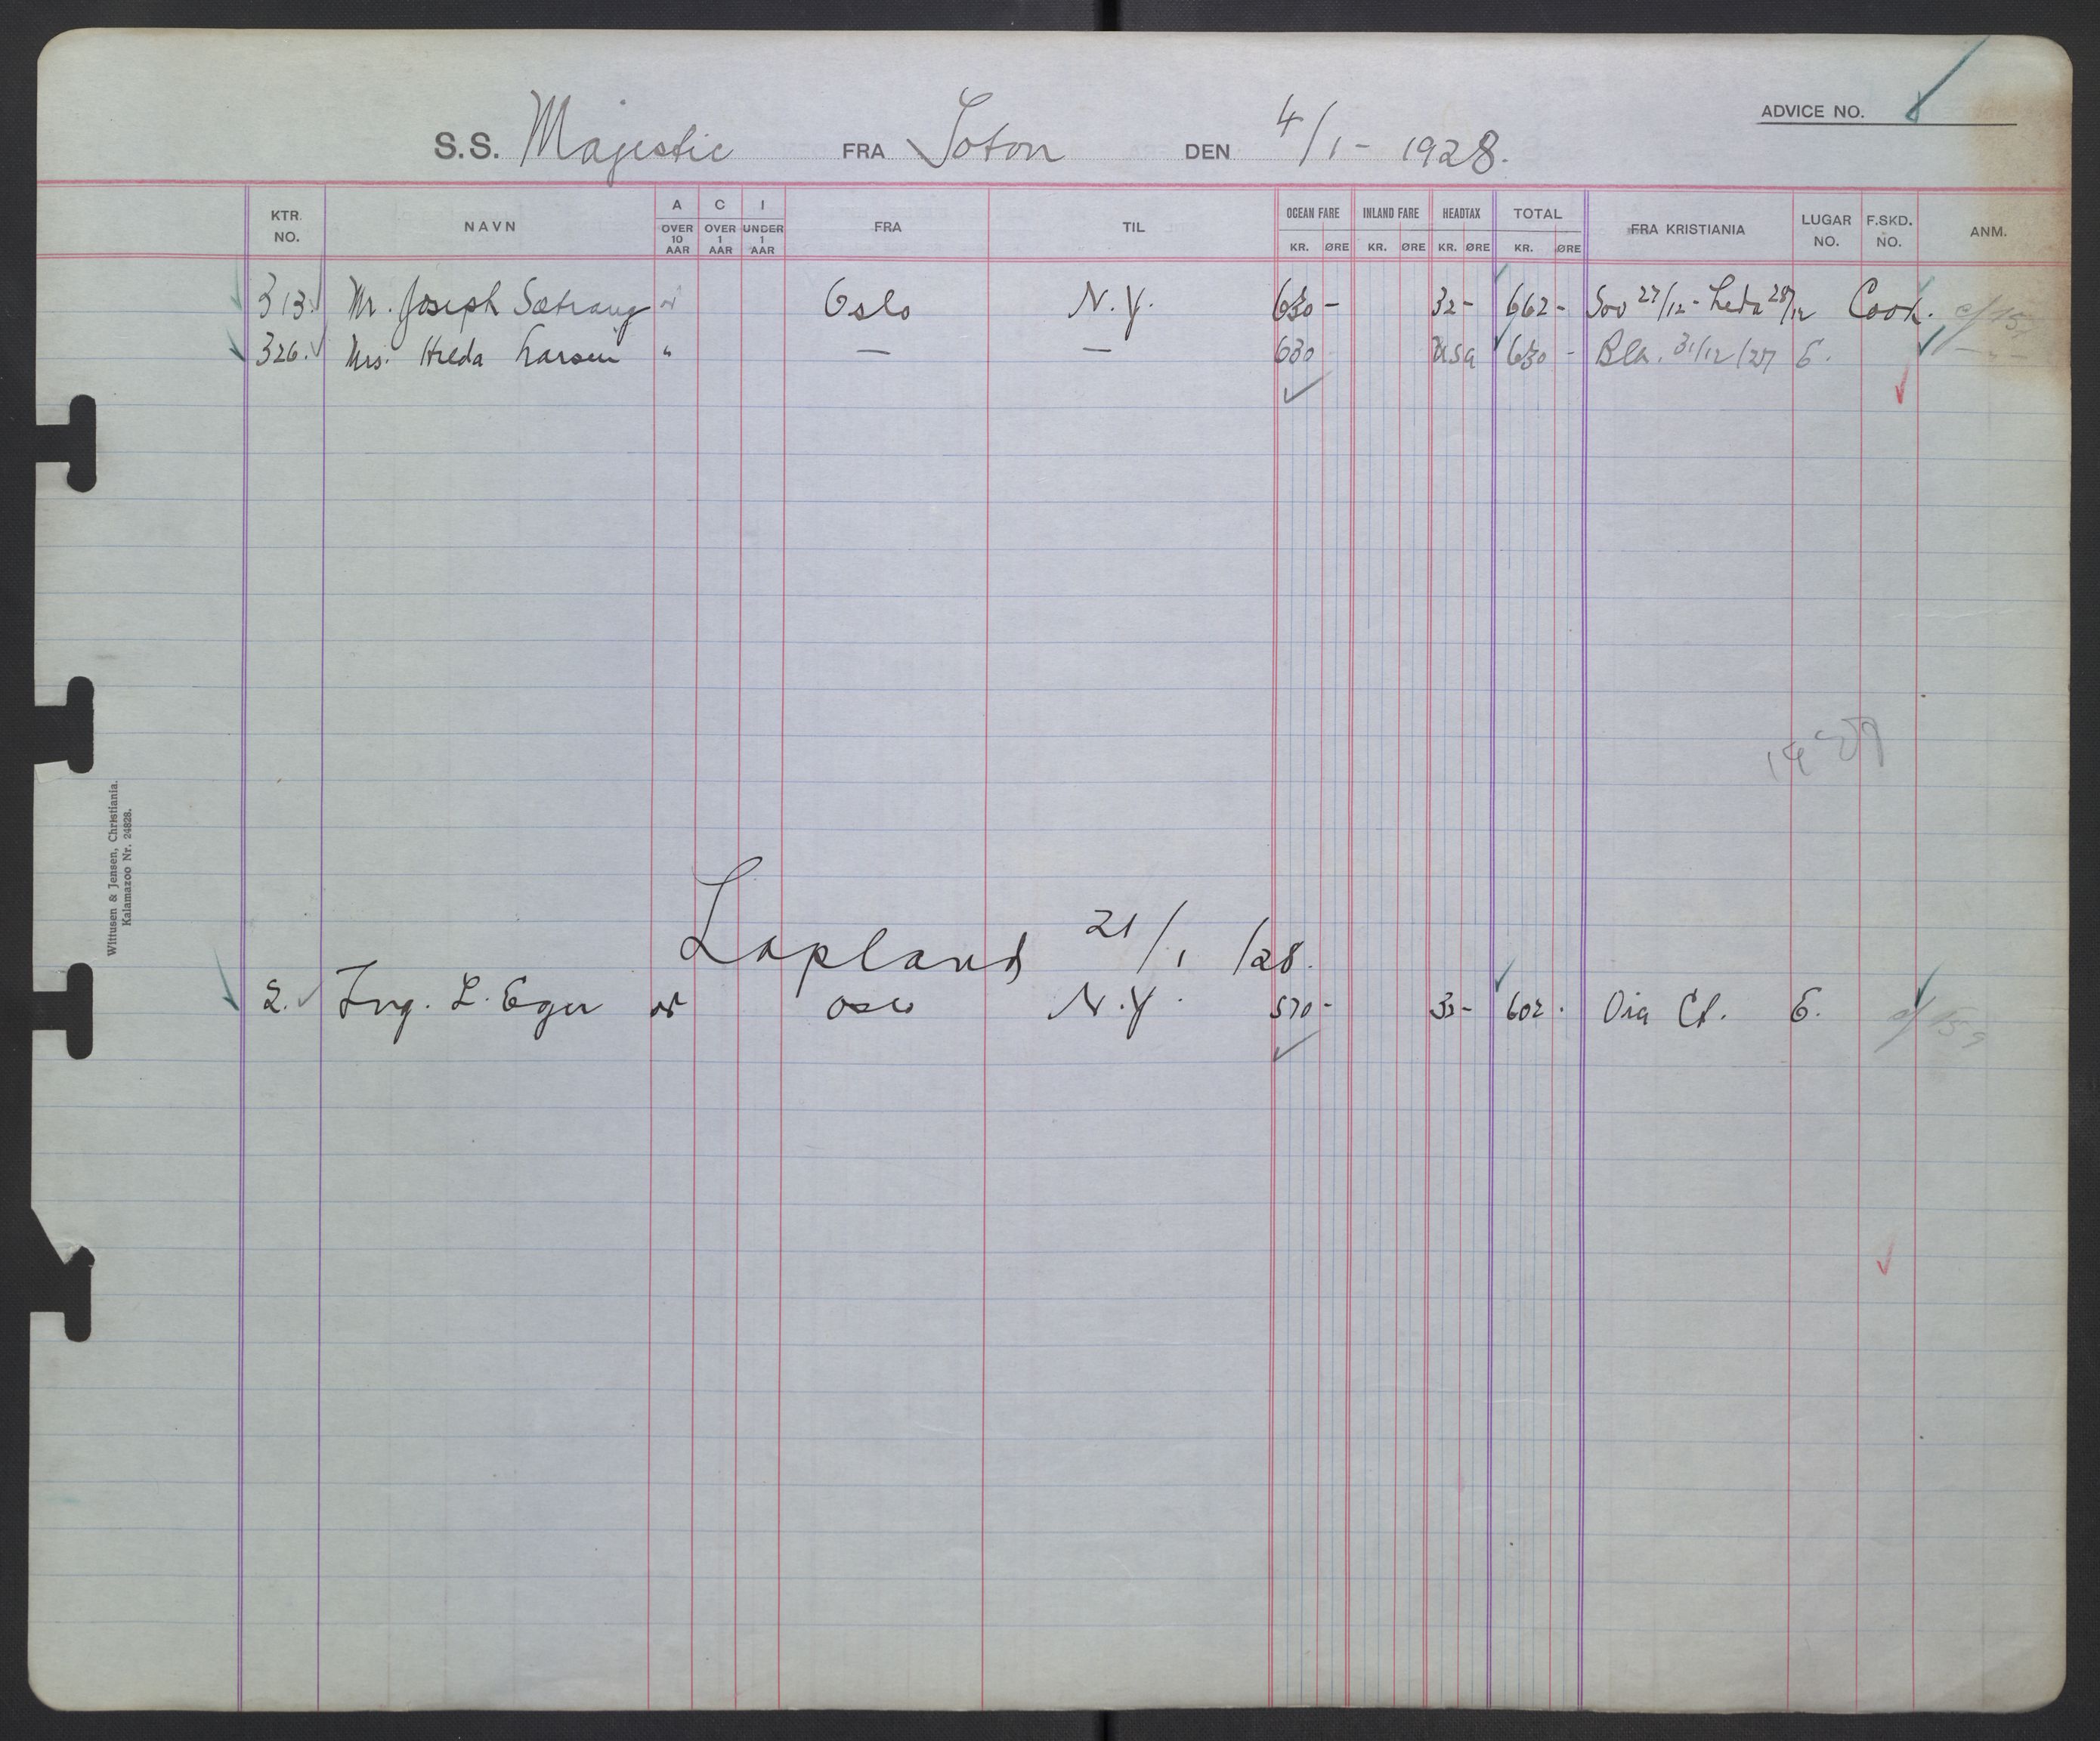 ADVICE NO.
S.S. Majestic FRA Soton DEN 4/1 - 1928.
KTR. NO. NAVN A OVER 10 AAR C OVER 1 AAR I UNDER 1 AAR FRA TIL OCEAN FARE KR. ØRE INLAND FARE KR. ØRE HEADTAX KR. ØRE TOTAL KR. ØRE FRA KRISTIANIA LUGAR NO. F.SKD. NO. ANM.
313. Mr. Joseph Sætrang Oslo N.Y. 630 - 32 - 662 - 27/12 - Leda 28/12 Cook.
326. Mrs. Hilda Larsen " — — 630 USA 630 - Bla. 31/12/27 E.
Lapland 21/1 /28.
2. Ing. L. Eger Oslo N.Y. 570 - 32 - 602 . Oia Ct. E.
Wittusen & Jensen, Christiania.
Kalamazoo Nr. 24828.